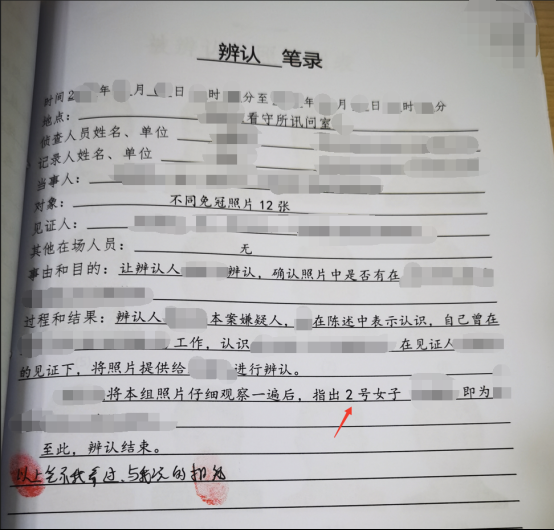 辨认 笔录
时间2 年 月 日 时 分至 年 月 日 时 分
地点： 看守所讯问室
侦查人员姓名、单位
记录人姓名、单位
当事人：
对象： 不同免冠照片12张
见证人：
其他在场人员： 无
事由和目的：让辨认人 辨认，确认照片中是否有在
过程和结果：辨认人 本案嫌疑人， 在陈述中表示认识，自己曾在
工作，认识 在见证人
的见证下，将照片提供给 进行辨认。
将本组照片仔细观察一遍后，指出2号女子 即为
至此，辨认结束。
以上笔录我看过，与我说的相符